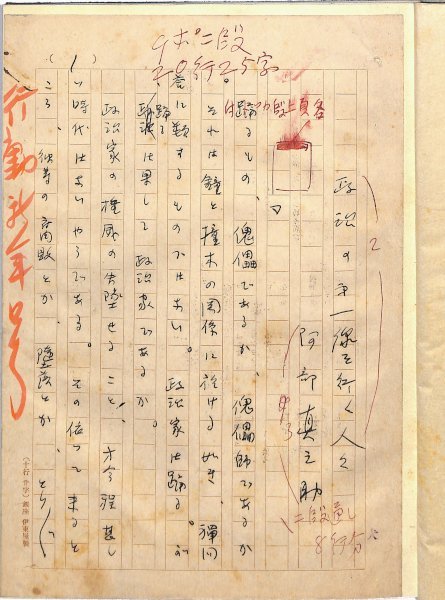 9ポ二段
20行25字
各頁上段ツメは
政治の第一線を行く人々
2
阿部真之助
二段通し
8行分に
踊るもの、傀儡であるか 傀儡師であるか
それは鐘と撞木の関係に於ける如き、禅問
答に類するものではない。政治家は踊る。が
踊る政治家は果して政治家であるか。
政治家の権威の失墜せること、方今程甚し
い時代はないやうである。その依つて来ると
ころ、彼等の腐敗とか、堕落とか、
行動新年号
(十行 廿字) 銀座 伊東屋製